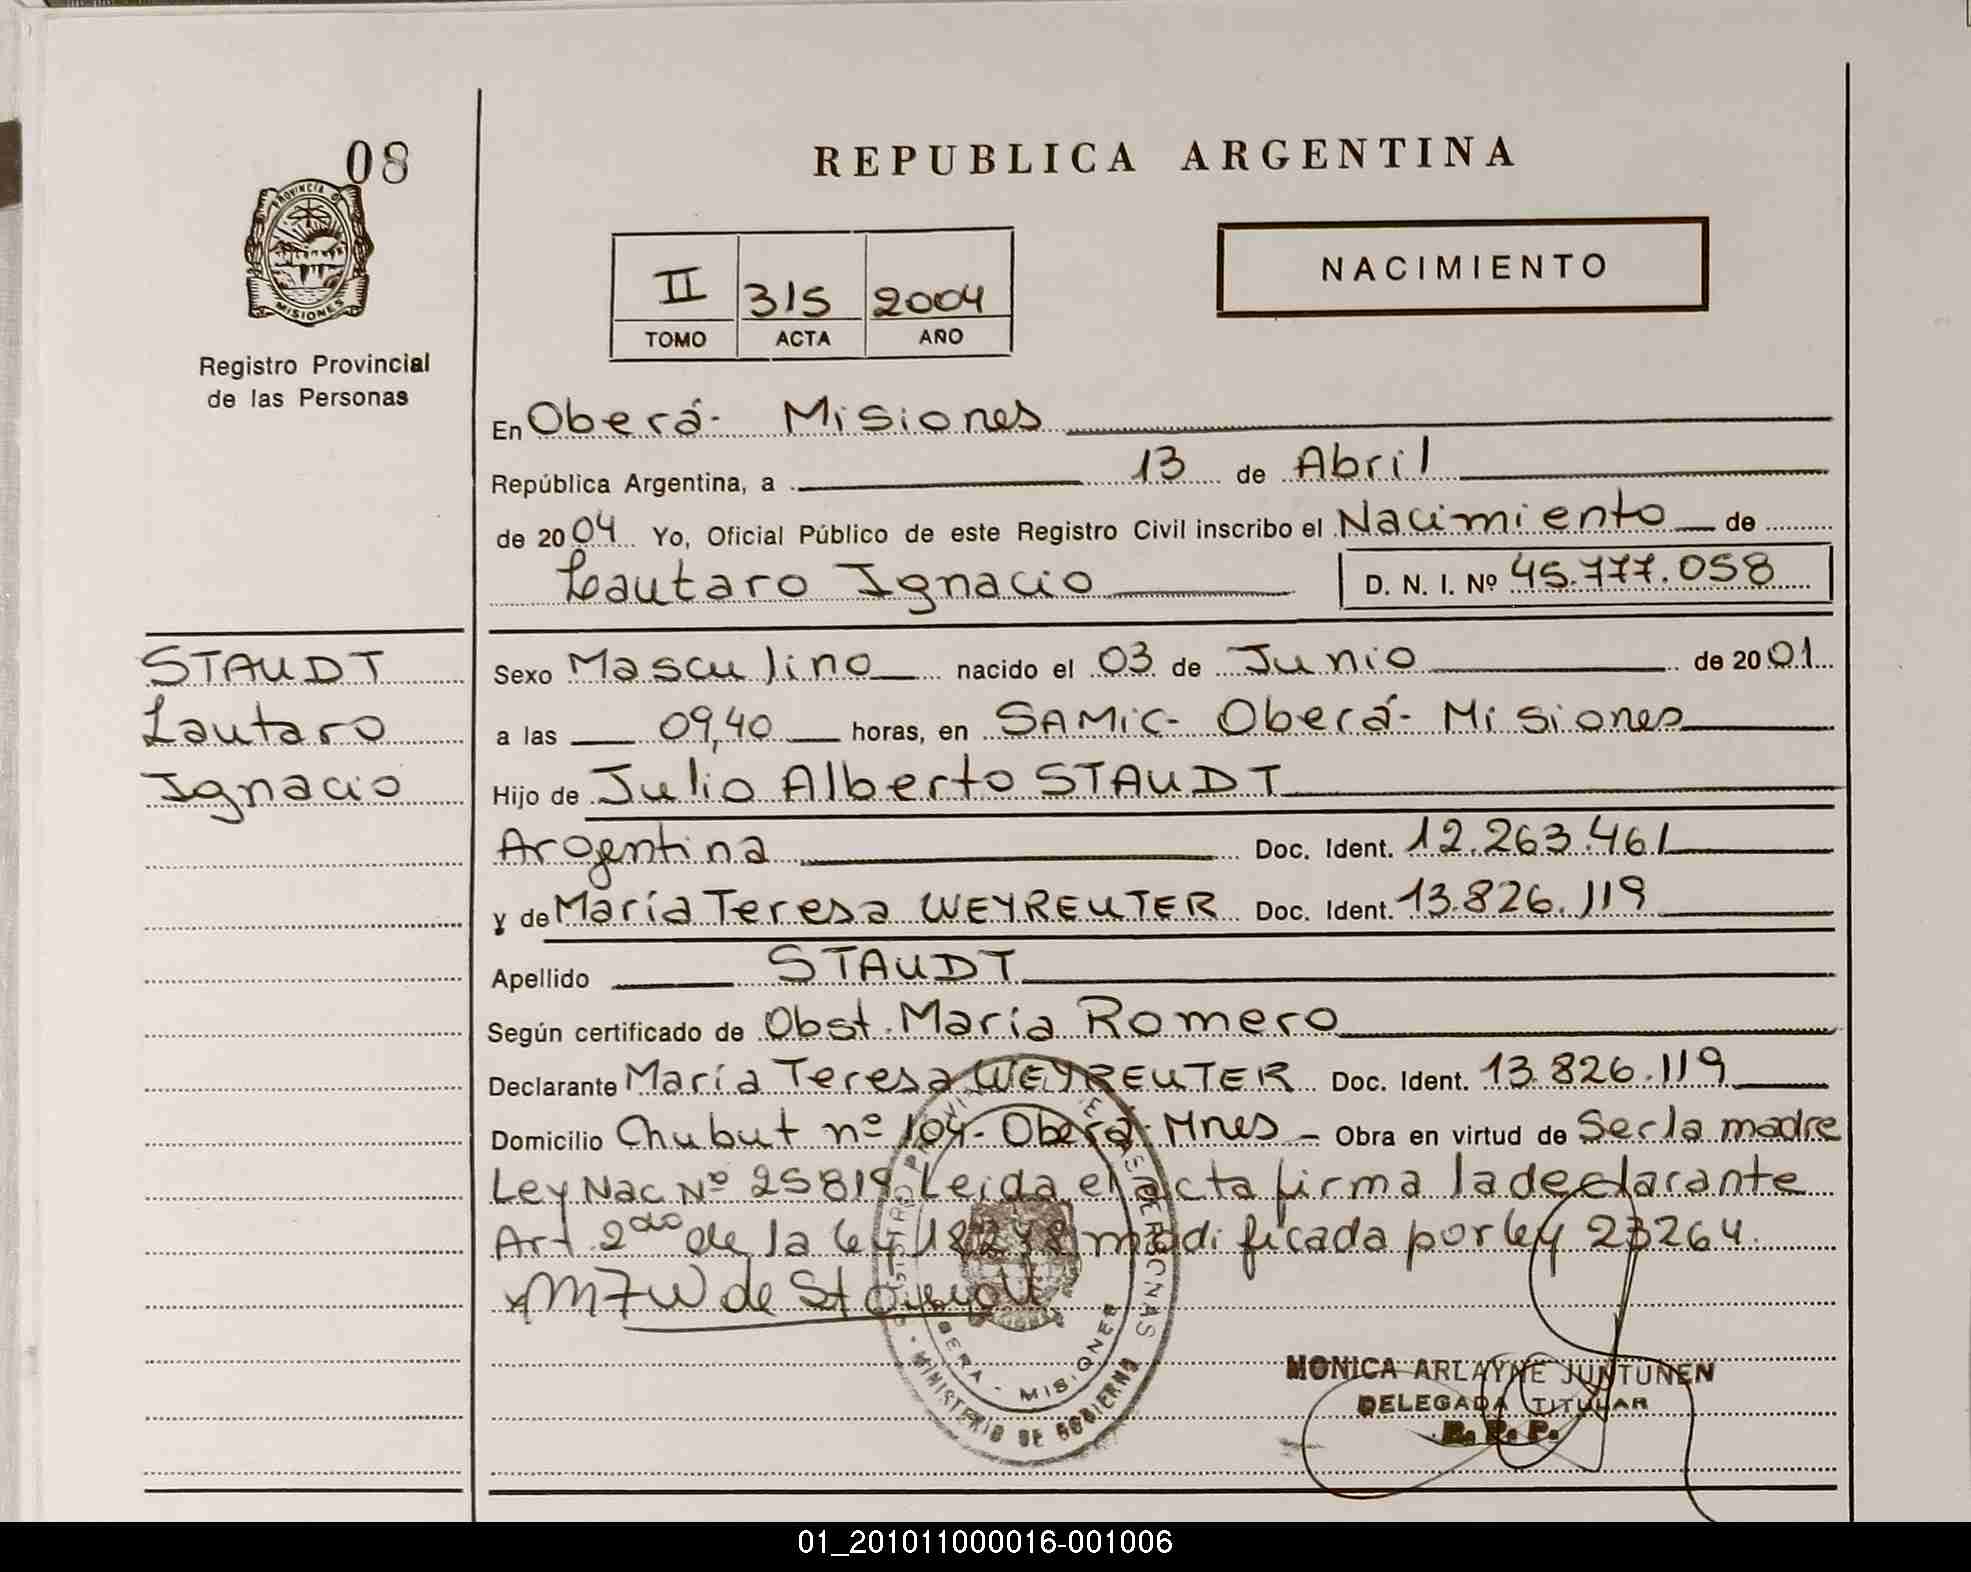 08
PROVINCIA DE
MISIONES
Registro Provincial
de las Personas
REPUBLICA ARGENTINA
NACIMIENTO
II 315 2004
TOMO ACTA AÑO
En Oberá- Misiones
República Argentina, a 13 de Abril
de 2004 Yo, Oficial Público de este Registro Civil inscribo el Nacimiento de
Lautaro Ignacio D. N. I. Nº 45.777.058
STAUDT
Lautaro
Ignacio
Sexo Masculino nacido el 03 de Junio de 2001
a las 09,40 horas, en SAMIC- Oberá- Misiones
Hijo de Julio Alberto STAUDT
Argentina Doc. Ident. 12.263.461
y de María Teresa WEYREUTER Doc. Ident. 13.826.119
Apellido STAUDT
Según certificado de Obst. María Romero
Declarante María Teresa WEYREUTER Doc. Ident. 13.826.119
Domicilio Chubut nº 104- Oberá- Mnes - Obra en virtud de Ser la madre
Ley Nac Nº 25819 Leida el acta firma la declarante
Art 2do de la ley 18248 modificada por ley 23264.
MTW de Staudt
OBERA - MISIONES
MINISTERIO DE GOBIERNO
MONICA ARLAYNE JUNTUNEN
DELEGADA TITULAR
R. P. P.
01_201011000016-001006